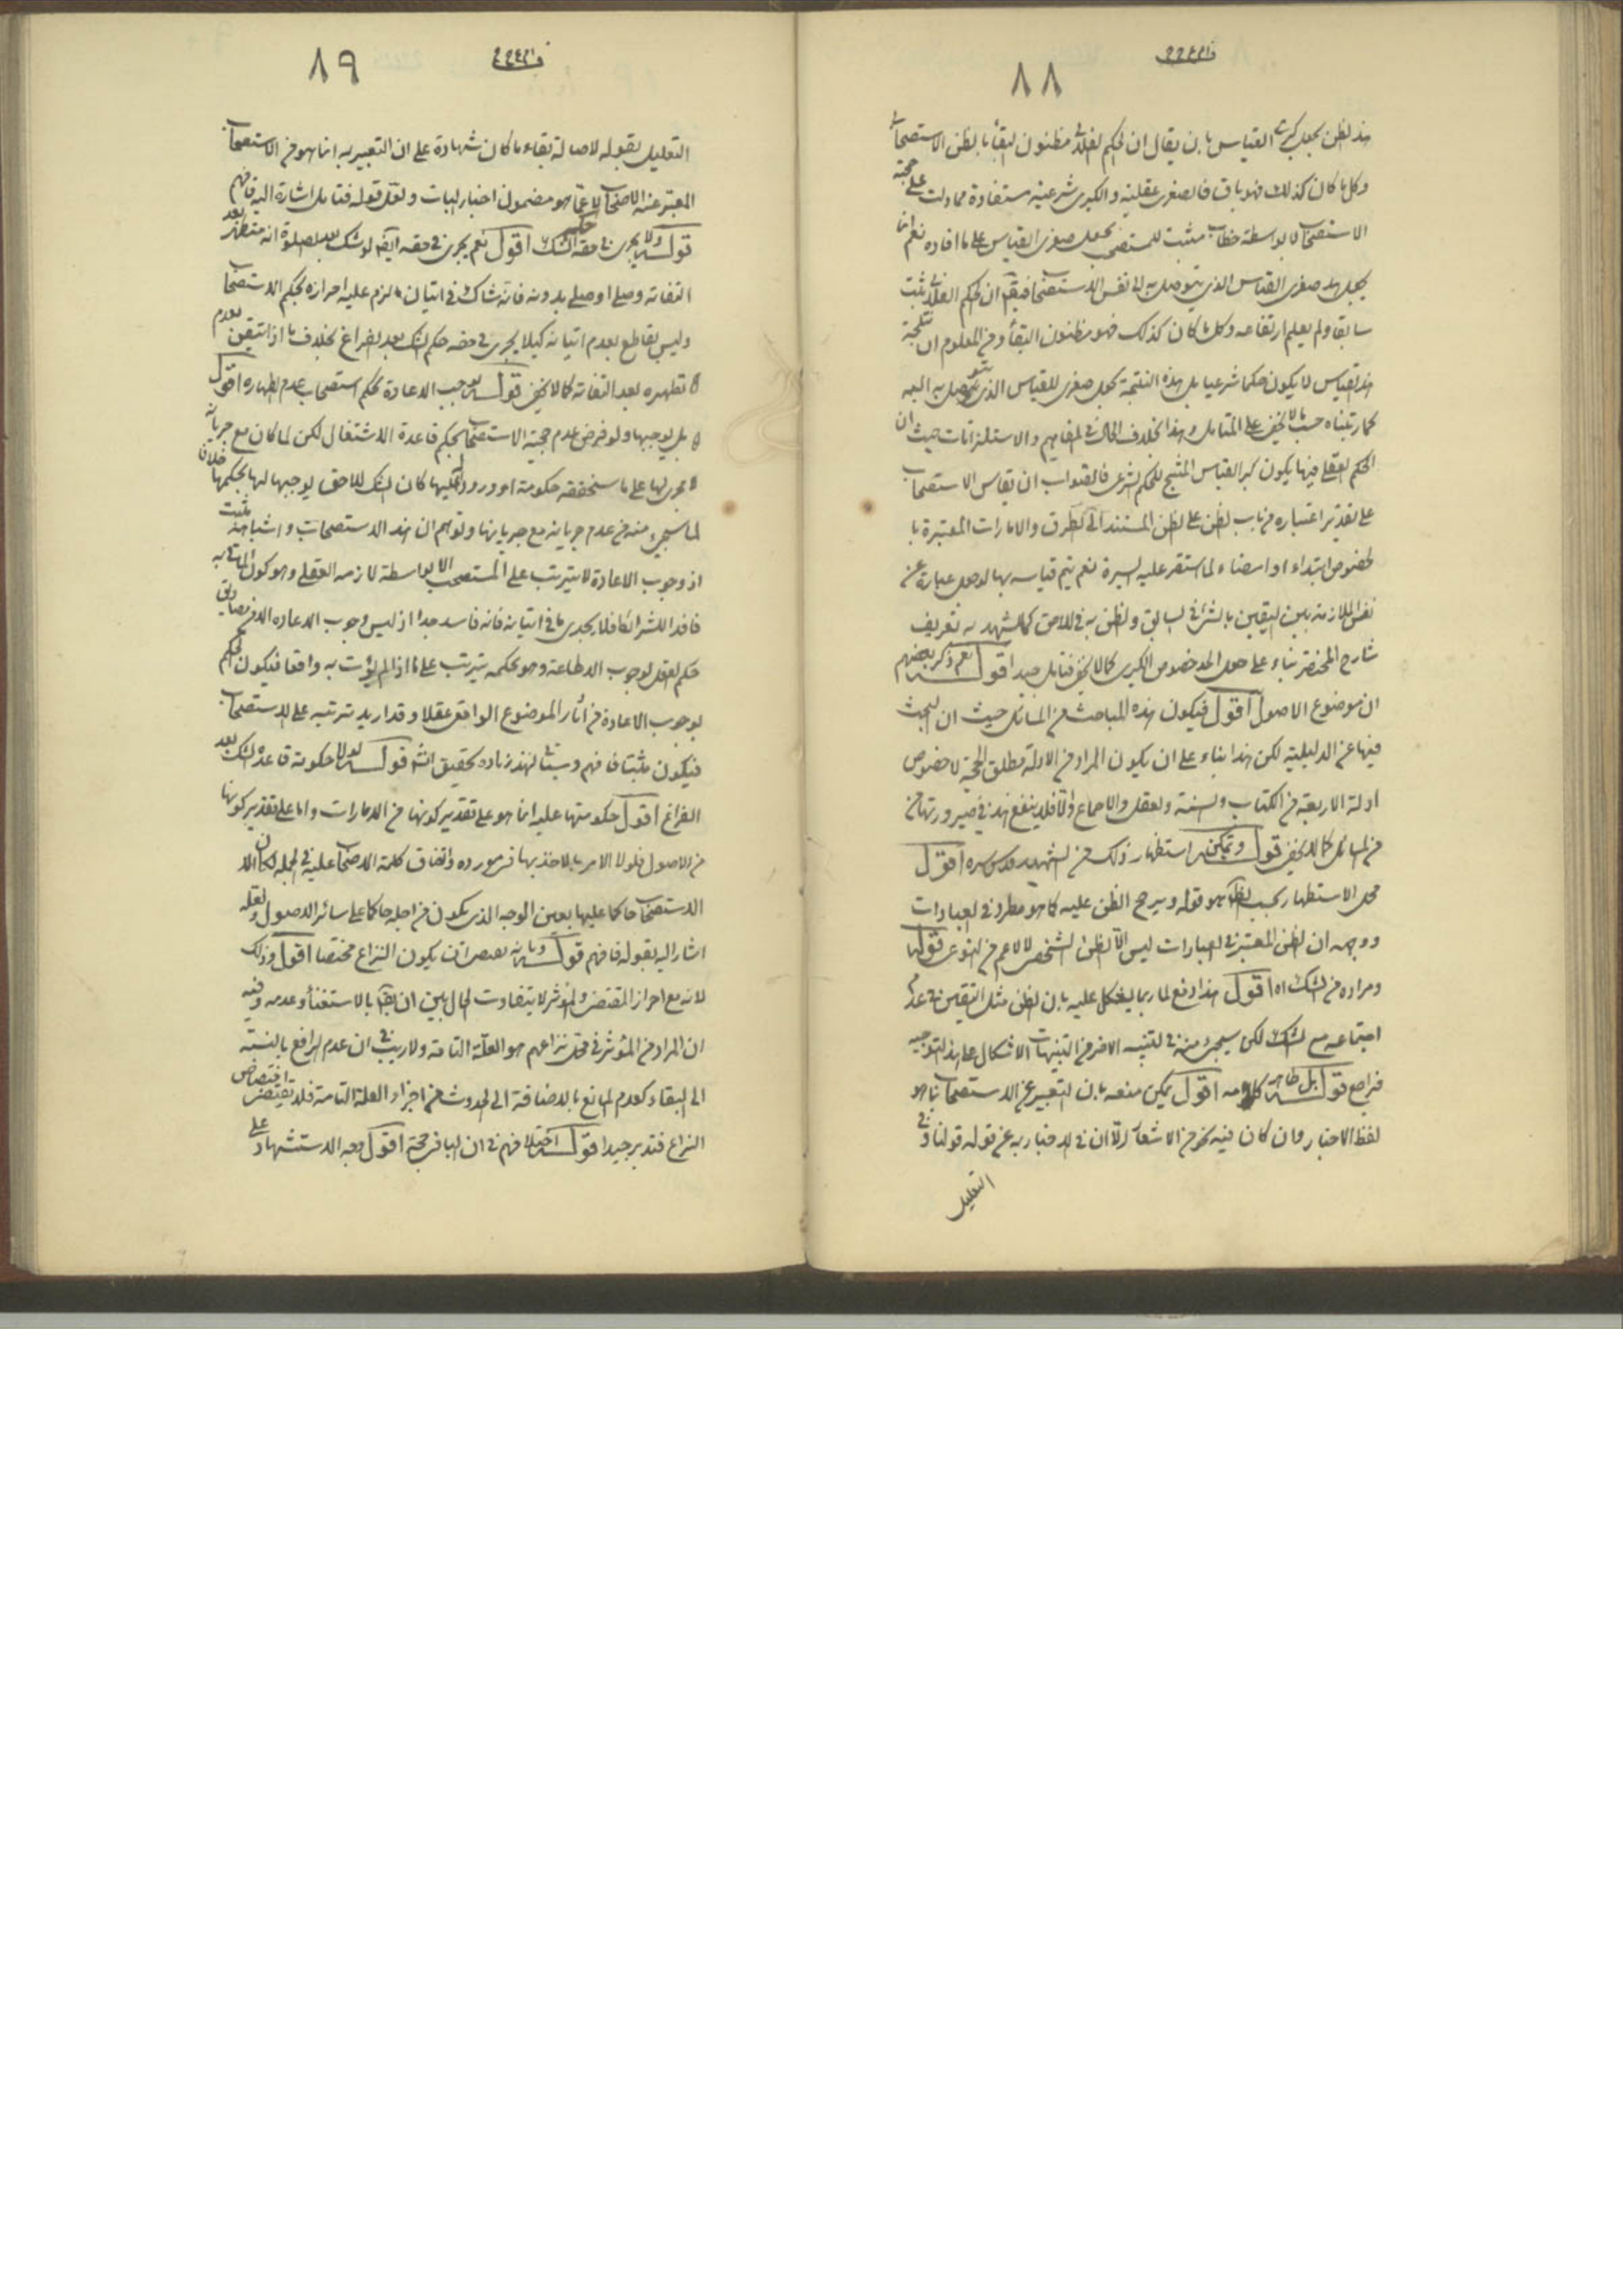 ٨٨
هذا الظن بجعل كبرى القياس بان يقال ان الحكم الفلانى مظنون البقاء بالظن الاستصحابى
وكل ما كان كذلك فهو باق فالصغرى عقلية والكبرى شرعية مستفادة مما دلت على حجية
الاستصحاب لا بواسطة خطاب مثبت للمستصحب بجعل صغرى القياس على ما افاده نعم انما
يجعل صغرى القياس الذى يتوصل به الى نفس الاستصحاب فيقال ان الحكم الفلانى ثبت
سابقا ولم يعلم ارتفاعه وكل ما كان كذلك فهو مظنون البقاء ومن المعلوم ان نتيجة
هذا القياس لا يكون حكما شرعيا بل هذه النتيجة تجعل صغرى للقياس الذى يتوصل به اليه
كما رتبناه حسب ما لا يخفى على المتامل وهذا بخلاف الحال فى المفاهيم والاستلزامات حيث ان
الحكم العقلى فيها يكون كبرى القياس المنتج للحكم الشرعى فالصواب ان يقاس الاستصحاب
على تقدير اعتباره من باب الظن على الظن المستند الى الطرق والامارات المعتبرة
بالخصوص ابتداء او امضاء لما استقر عليه السيرة نعم يتم قياسه بها لو جعل عبارة عن
نفس الملازمة بين اليقين بالشئ فى السابق والظن به فى اللاحق كما يشهد به تعريف
شارح المختصر بناء على جعل الحد خصوص الكبرى كما لا يخفى فتامل جيدا قوله نعم ذكر بعضهم
ان موضوع الاصول اقول فيكون هذه المباحث من المسائل حيث ان البحث
فيها عن الدليلية لكن هذا بناء على ان يكون المراد من الادلة مطلق الحجة لا خصوص
ادلة الاربعة من الكتاب والسنة والعقل والاجماع والا فلا ينفع هذا فى صيرورتها
من المسائل كما لا يخفى قوله ويمكن استظهار ذلك من الشهيد قدس سره اقول
محل الاستظهار بحسب الظاهر هو قوله ويرجح الظن عليه كما هو مطرد فى العبادات
ووجهه ان الظن المعتبر فى العبادات ليس الا الظن الشخصى لا الاعم من النوعى قوله
ومراده من الشك اه اقول هذا دفع لما ربما يشكل عليه بان الظن مثل اليقين فى عدم
اجتماعه مع الشك لكن سيجئ منه فى التنبيه الاخر من التنبيهات الاشكال على هذا التوجيه
فراجع قوله بل ظاهر كلامه اقول يمكن منعه بان التعبير عن الاستصحاب بما هو
لفظ الاخبار وان كان فيه نحو من الاشعار الا ان فى الاخبار به عن قوله قولنا وفى
التعليل
٨٩
التعليل بقوله لاصالة بقاء ما كان شهادة على ان التعبير به انما هو من الاستصحاب
المعتبر عنه الاصحاب لا عما هو مضمون اخبار الباب ولعل قوله فتامل اشارة اليه فافهم
قوله ولا يجرى فى حقه حكم الشك اقول نعم يجرى فى حقه ايضا لو شك بعد الصلوة انه تطهر بعد
التفاته وصلى او صلى بدونه فانه شاك فى اتيان ما لزم عليه احرازه بحكم الاستصحاب
وليس بقاطع بعدم اتيانه كيلا يجرى فى حقه حكم الشك بعد الفراغ بخلاف ما اذا تيقن بعدم
تطهره بعد التفاته كما لا يخفى قوله يوجب الاعادة بحكم استصحاب عدم الطهارة اقول
بل يوجبها ولو فرض عدم حجية الاستصحاب بحكم قاعدة الاشتغال لكن لما كان مع جريانه
لا مجرى لها على ما سنحققه حكومة او ورودا عليها كان الشك اللاحق يوجبها لها بحكمها خلافا
لما سيجئ منه من عدم جريانه مع جريانها وتوهم ان هذا الاستصحاب واشباهه مثبت
اذ وجوب الاعادة لا يترتب على المستصحب الا بواسطة لازمه العقلى وهو كون الماتى به
فاقدا للشرائط فلا يجدى ما فى اتيانه فانه فاسد جدا اذ ليس وجوب الاعادة الا من مصاديق
حكم العقل بوجوب الاطاعة وهو بحكمه يترتب على ما اذا لم يؤت به واقعا فيكون الحكم
بوجوب الاعادة من آثار الموضوع الواقع عقلا وقد اريد ترتبه على الاستصحاب
فيكون مثبتا فافهم وسيأتى لهذا زيادة تحقيق انشاء قوله لولا حكومة قاعدة الشك بعد
الفراغ اقول حكومتها عليه انما هو على تقدير كونها من الامارات واما على تقدير كونها
من الاصول فلولا الامر بالاخذ بها فى مورده واتفاق كلمة الاصحاب عليه فى الجملة لكان
الاستصحاب حاكما عليها بعين الوجه الذى يكون من اجله حاكما على سائر الاصول ولعله
اشار اليه بقوله فافهم قوله وبانه يقصر ان يكون النزاع مختصا اقول وذلك
لانه مع احراز المقتضى والمؤثر لا يتفاوت الحال بين ان يقال بالاستغناء وعدمه وفيه
ان المراد من المؤثر فى محل نزاعهم هو العلة التامة ولا ريب فى ان عدم الرافع بالنسبة
الى البقاء كعدم المانع بالاضافة الى الحدوث من اجزاء العلة التامة فلا يقتضى اختصاص
النزاع فتدبر جيدا قوله اختلافهم فى ان البافى حجة اقول وجه الاستشهاد على